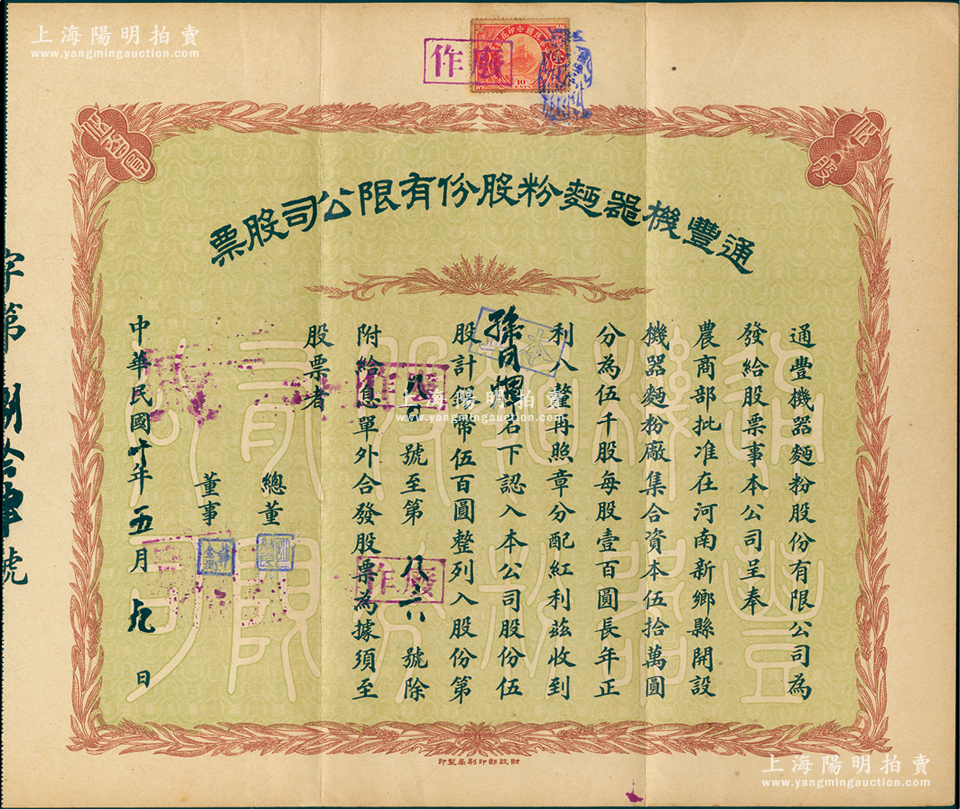 上海陽明拍賣
www.yangmingauction.com
作廢
10
通豐機器麵粉股份有限公司股票
通豐機器麵粉股份有限公司為
發給股票事本公司呈奉
農商部批准在河南新鄉縣開設
機器麵粉廠集合資本伍拾萬圓
分為伍千股每股壹百圓長年正
利八釐再照章分配紅利茲收到
名下認入本公司股份伍
股計銀幣伍百圓整列入股份第
號至第 號除
附給息單外合發股票為據須至
股票者
總董
董事
中華民國十年五月九日
作廢
作廢
字第 號
財政部印刷局製印
上海陽明拍賣
www.yangmingauction.com